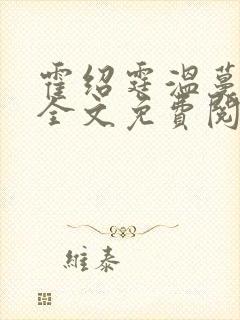 霍绍霆温蔓
全文免费阅
維泰